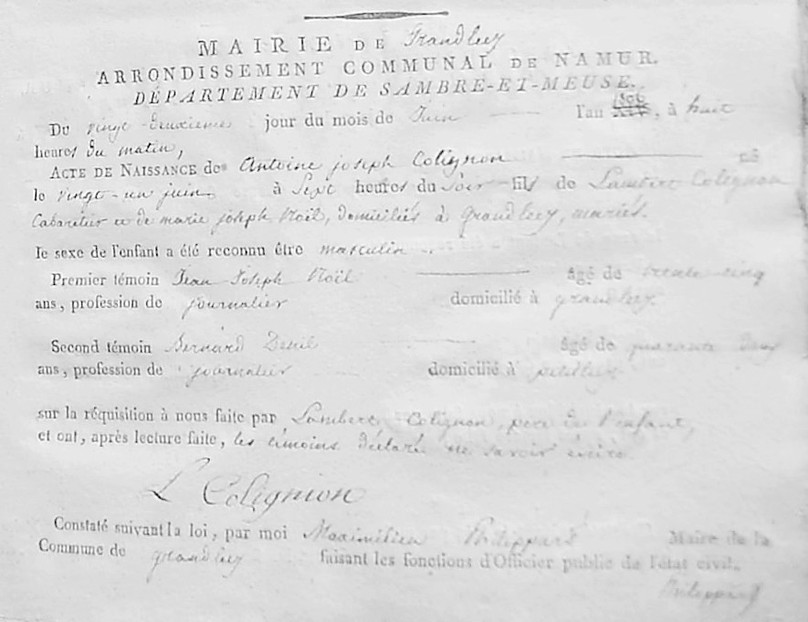 MAIRIE DE Grandleez
ARRONDISSEMENT COMMUNAL DE NAMUR.
DÉPARTEMENT DE SAMBRE-ET-MEUSE.
Du vingt-deuxieme jour du mois de Juin l'an , à huit
heures du matin,
ACTE DE NAISSANCE de Antoine joseph Colignon né
le vingt-un juin à Sept heures du Soir fils de Lambert Colignon
Cabaretier et de marie joseph Noël, domiciliés à grandleez, mariés.
le sexe de l'enfant a été reconnu être masculin.
Premier témoin Jean Joseph Noël âgé de trente-cinq
ans, profession de journalier domicilié à grandleez.
Second témoin Bernard âgé de quarante deux
ans, profession de journalier domicilié à
sur la réquisition à nous faite par Lambert Colignon, pere de l'enfant,
et ont, après lecture faite, les témoins déclaré ne savoir écrire.
L Colignion
Constaté suivant la loi, par moi Maximilien Philippart Maire de la
Commune de grandleez faisant les fonctions d'Officier public de l'état civil.
Philippart